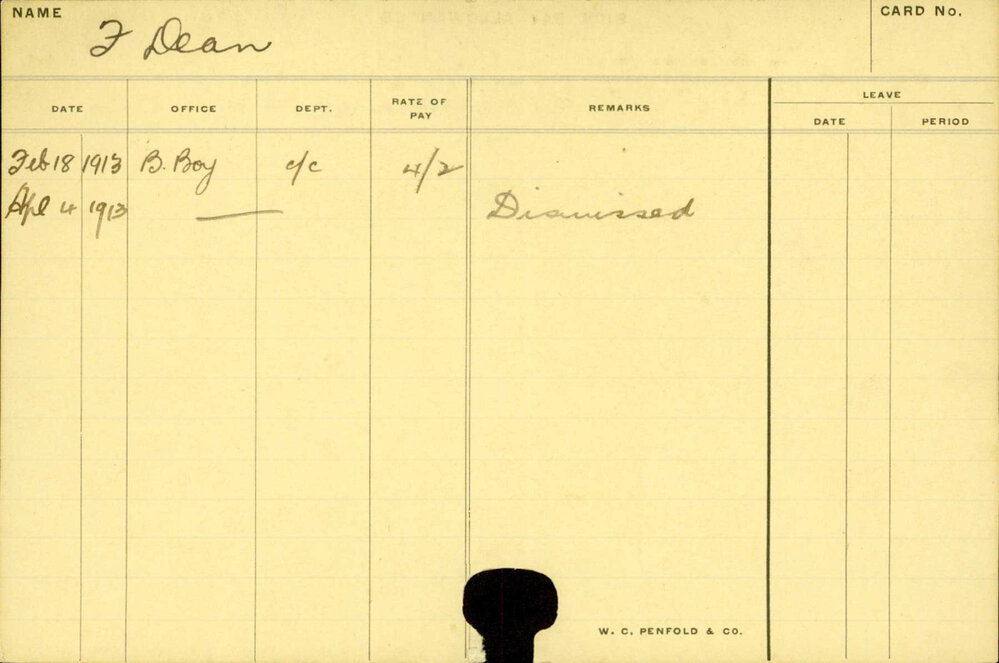 NAME F Dean CARD No.
DATE OFFICE DEPT. RATE OF PAY REMARKS LEAVE
DATE PERIOD
Feb 18 1913 B. Boy c/c 4/2
Apl 4 1913 — Dismissed
W. C. PENFOLD & CO.